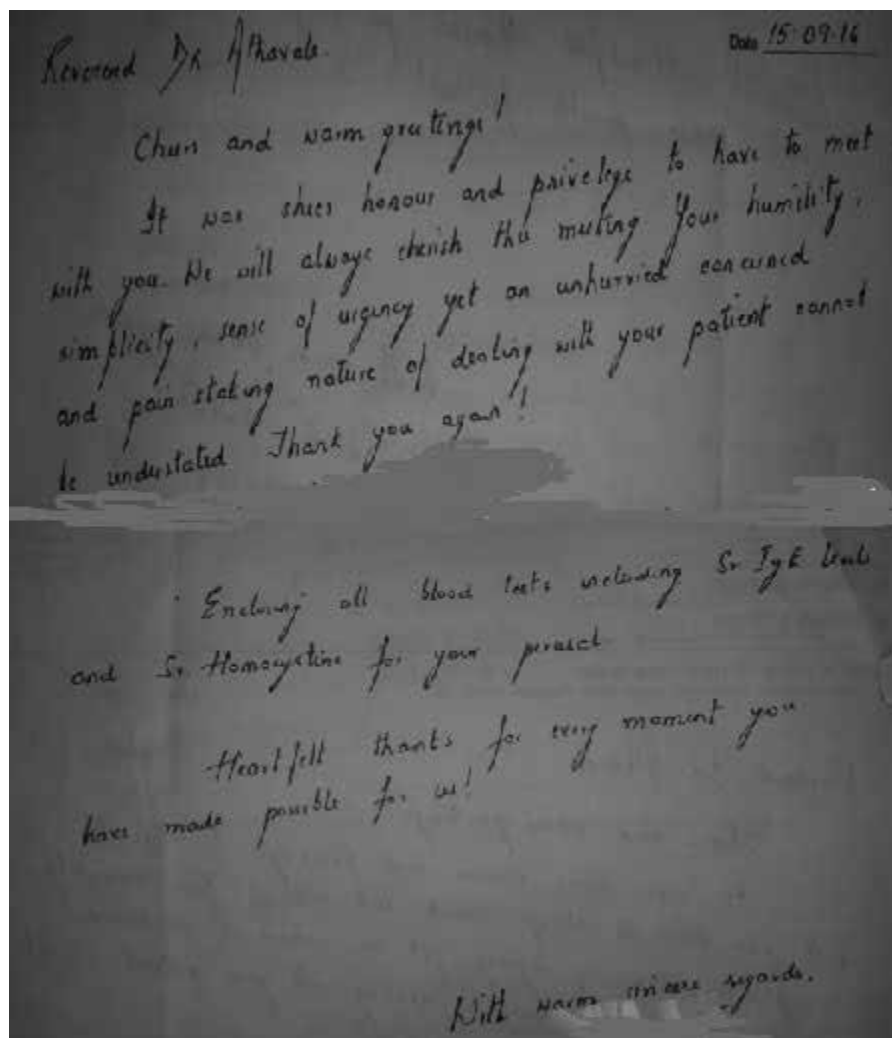 Date 15.09.16
Reverend Dr Athavale.
Cheers and warm greetings!
It was sheer honour and privelege to have to meet
with you. We will always cherish this meeting Your humility,
simplicity, sense of urgency yet an unhurried concerned
and pain staking nature of dealing with your patient cannot
be understated Thank you again!
Enclosing all blood tests including Sr IgE levels
and Sr. Homocystine for your perusal
Heartfelt thanks for every moment you
have made possible for us!
With warm sincere regards.